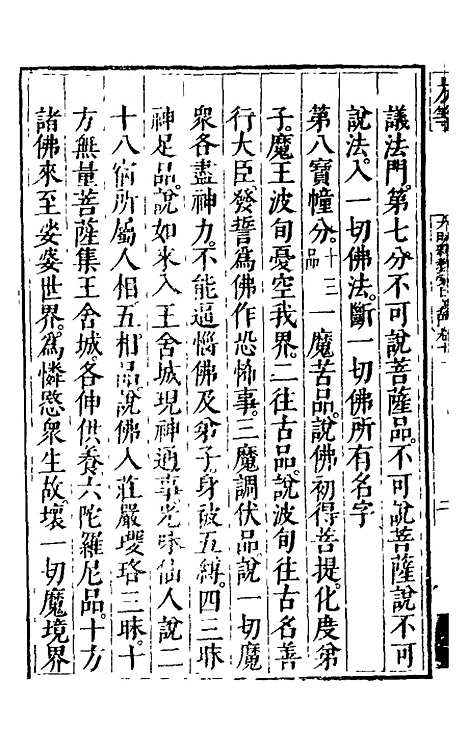 議法門。第七分不可說菩薩品。不可說菩薩說不可
說法。入一切佛法。斷一切佛所有名字
第八寶幢分。十三品一魔苦品。說佛初得菩提。化度弟
子。魔王波旬憂空我界。二往古品。說波旬往古名善
行大臣。發誓爲佛作恐怖事。三魔調伏品說一切魔
衆各盡神力。不能逼惱佛及弟子。身被五縛。四三昧
神足品。說如來入王舍城現神通事。光味仙人說二
十八宿所屬人相五相品說佛入莊嚴瓔珞三昧。十
方無量菩薩集王舍城。各伸供養六陀羅尼品。十方
諸佛來至娑婆世界。爲憐愍衆生故壞一切魔境界
方等
二